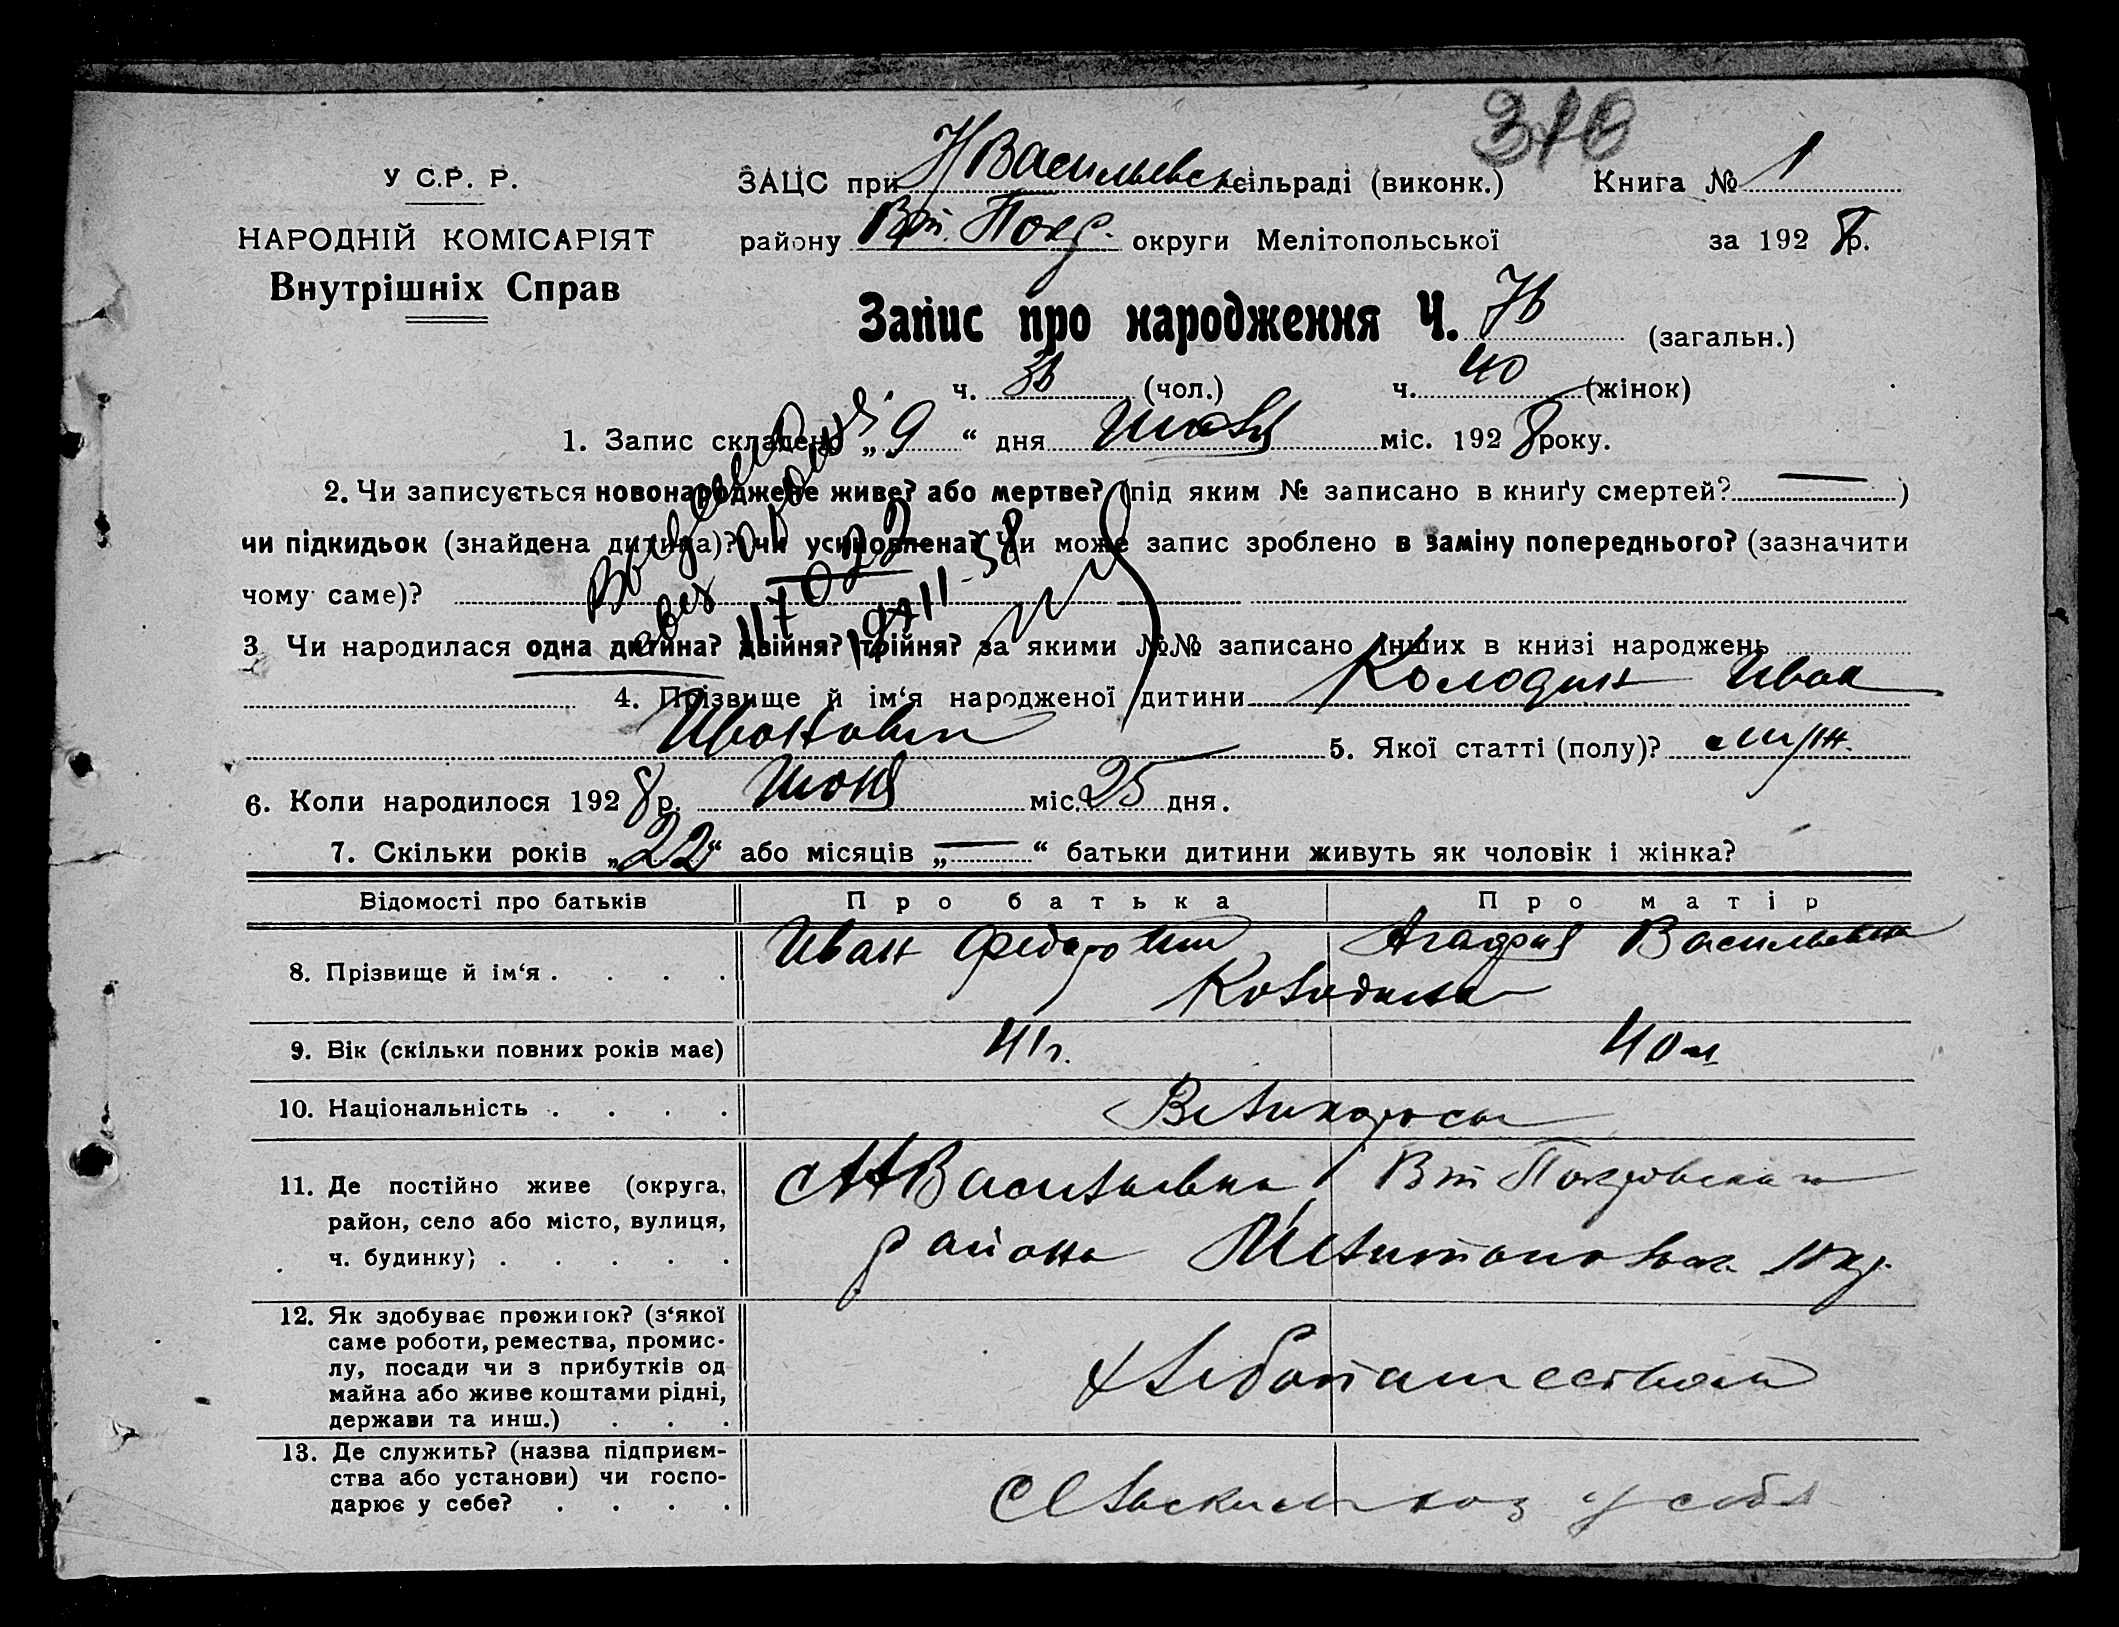 310
У С.Р. Р.
ЗАЦС при НВасильевск сільраді (виконк.) Книга № 1
НАРОДНІЙ КОМІСАРІЯТ
району Вт. Покр. округи Мелітопольської за 192 8 р.
Внутрішніх Справ
Запис про народження Ч. 76 (загальн.)
ч. 36 (чол.) ч. 40 (жінок)
1. Запис складено „ 9 “ дня Июля міс. 192 8 року.
2. Чи записується новонароджене живе? або мертве? (під яким № записано в книґу смертей? — )
чи підкидьок (знайдена дитина)? чи усиновлена? Чи може запис зроблено в заміну попереднього? (зазначити
чому саме)?
3. Чи народилася одна дитина? двійня? трійня? за якими №№ записано інших в книзі народжень
4. Прізвище й ім‘я народженої дитини Колодин Иван
Иванович 5. Якої статті (полу)? муж.
6. Коли народилося 192 8 р. Июня міс. 25 дня.
7. Скільки років „ 22 “ або місяців „ — “ батьки дитини живуть як чоловік і жінка?
Відомості про батьків Про батька Про матір
8. Прізвище й ім‘я . . . . Иван Федорович Агафия Васильевна
Колодины
9. Вік (скільки повних років має) 41 г. 40 л
10. Національність . . . . Великоросы
11. Де постійно живе (округа, район, село або місто, вулиця, ч. будинку) . . . . . с Н Васильевка Вт Покровскаго
района Мелитопольск окр.
12. Як здобуває прожиток? (з‘якої саме роботи, ремества, промислу, посади чи з прибутків од майна або живе коштами рідні, держави та инш.) . . . Хлебопашеством
13. Де служить? (назва підприємства або установи) чи господарює у себе? . . . . у себя